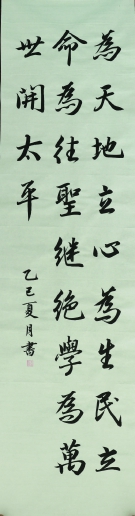 為天地立心為生民立
命為往聖繼絕學為萬
世開太平
乙巳夏月書